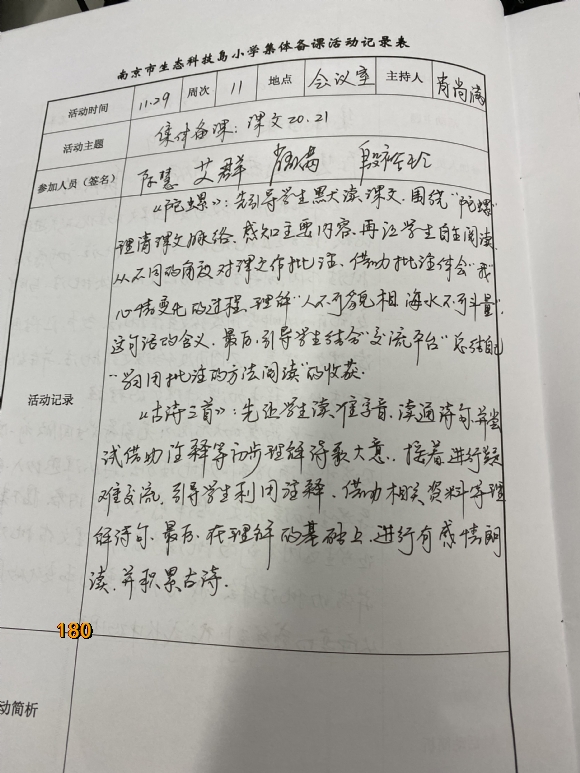 南京市生态科技岛小学集体备课活动记录表
活动时间 11.29 周次 11 地点 会议室 主持人 肖尚满
活动主题 集体备课：课文20.21
参加人员（签名） 陈慧 艾群
《陀螺》：先引导学生默读课文，围绕“陀螺”
理清课文脉络，感知主要内容，再让学生自主阅读，
从不同的角度对课文作批注，借助批注体会“我”
心情变化的过程，理解“人不可貌相，海水不可斗量”
这句话的含义，最后，引导学生结合“交流平台”总结自己
“学用批注的方法阅读”的收获.
活动记录
《古诗三首》：先让学生读准字音，读通诗句，并尝
试借助注释等初步理解诗歌大意，接着进行疑
难交流，引导学生利用注释、借助相关资料等理
解诗句，最后，在理解的基础上，进行有感情朗
读，并积累古诗.
180
动简析